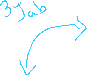 3 Jab